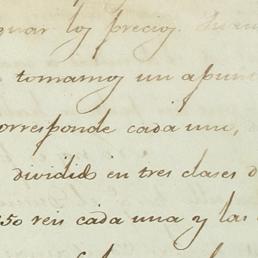 los precios.
tomamos un apun
orresponde cada uno,
dividido en tres clases d
50 reis cada una y las